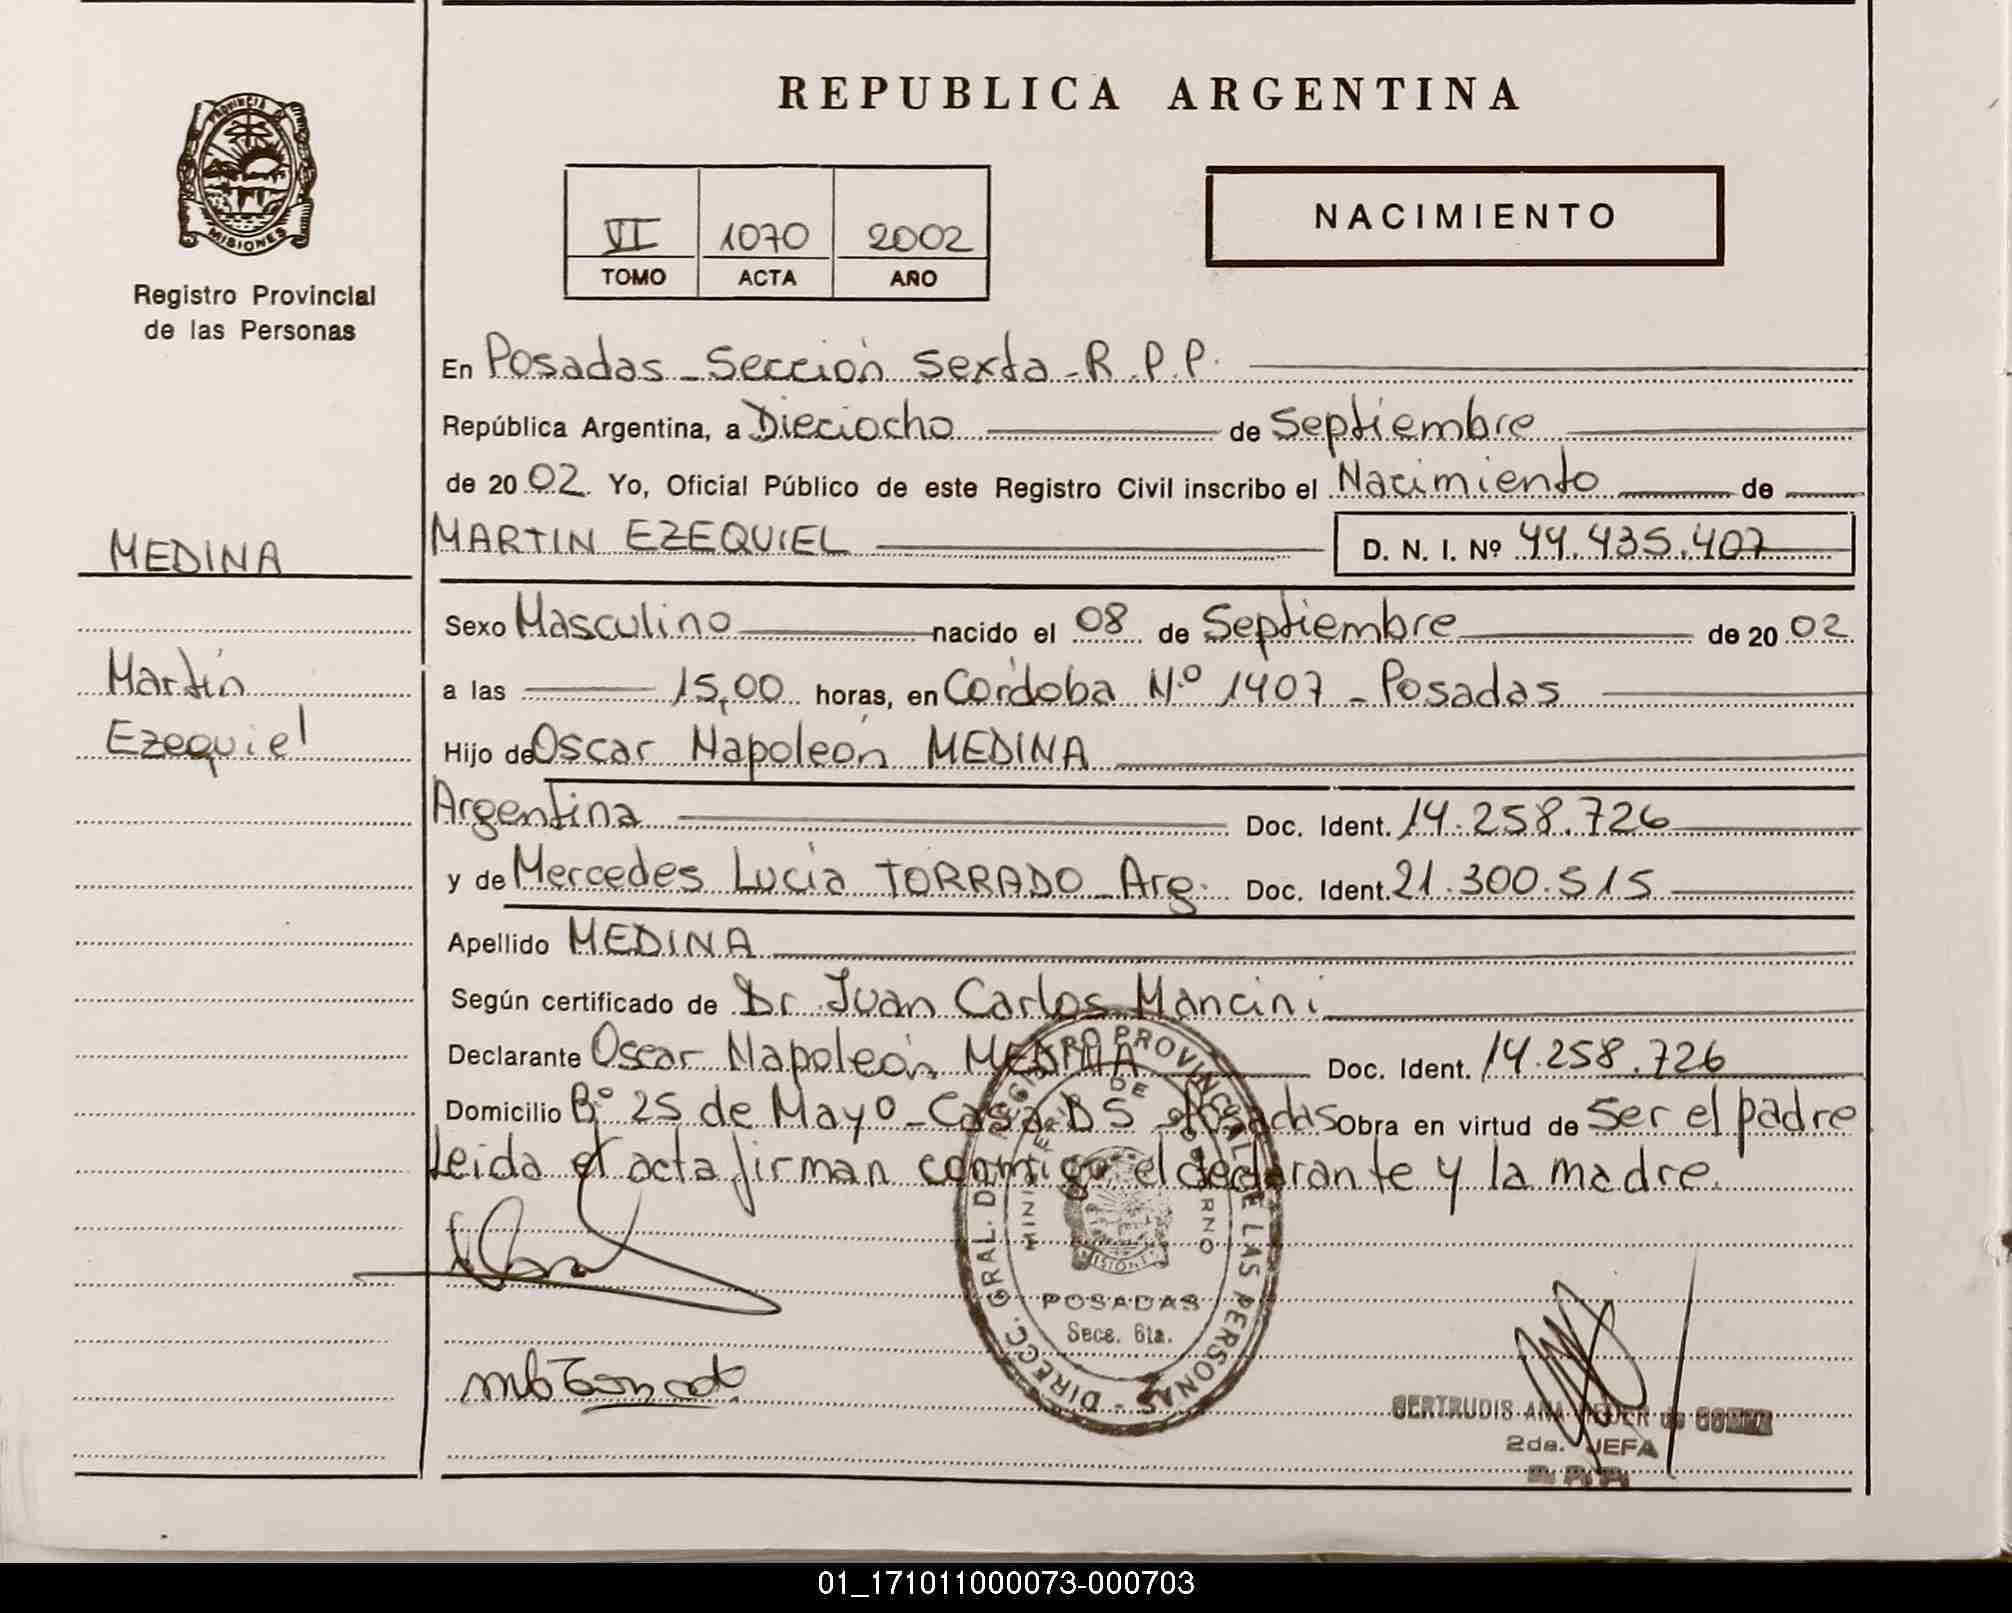 REPUBLICA ARGENTINA
PROVINCIA
MISIONES
Registro Provincial
de las Personas
VI 1070 2002
TOMO ACTA AÑO
NACIMIENTO
En Posadas - Sección Sexta - R.P.P.
República Argentina, a Dieciocho de Septiembre
de 2002. Yo, Oficial Público de este Registro Civil inscribo el Nacimiento de
MEDINA
Martín
Ezequiel
MARTIN EZEQUIEL D. N. I. Nº 44.435.407
Sexo Masculino nacido el 08 de Septiembre de 2002
a las 15,00 horas, en Córdoba N.º 1407 - Posadas
Hijo de Oscar Napoleón MEDINA
Argentina Doc. Ident. 14.258.726
y de Mercedes Lucía TORRADO - Arg. Doc. Ident. 21.300.515
Apellido MEDINA
Según certificado de Dr. Juan Carlos Mancini
Declarante Oscar Napoleón MEDINA Doc. Ident. 14.258.726
Domicilio Bº 25 de Mayo - Casa B5 - Posadas Obra en virtud de ser el padre
Leida el acta firman conmigo el declarante y la madre.
DIRECC. GRAL. DE REGISTRO PROVINCIAL DE LAS PERSONAS
MINISTERIO DE GOBIERNO
MISIONES
POSADAS
Secc. 6ta.
GERTRUDIS ANA de
2da. JEFA
R. P. P.
01_171011000073-000703